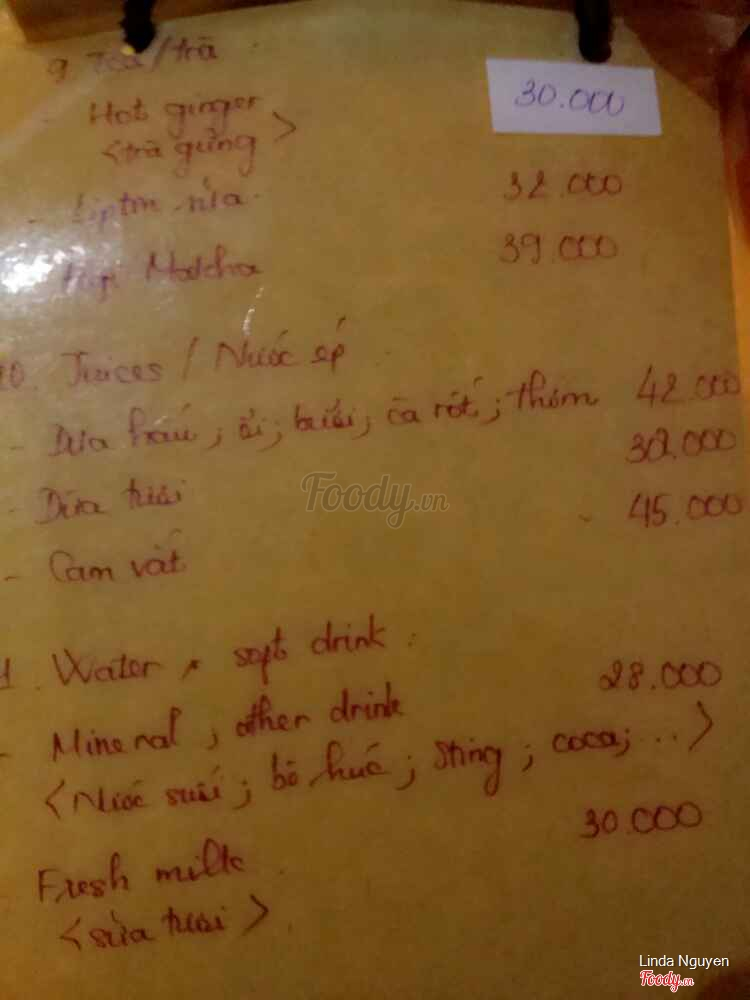 9 Tea/trà
- Hot ginger 30.000
<trà gừng>
- Lipton sữa 32.000
Matcha 39.000
10. Juices / Nước ép
- Dưa hấu; ổi; bưởi; cà rốt; thơm 42.000
- Dừa tươi 32.000
- Cam vắt 45.000
Water, soft drink:
- Mineral, other drink 28.000
<Nước suối; bò húc; sting; coca; ...>
Fresh milk 30.000
<sữa tươi>
Foody.vn
Linda Nguyen
Foody.vn